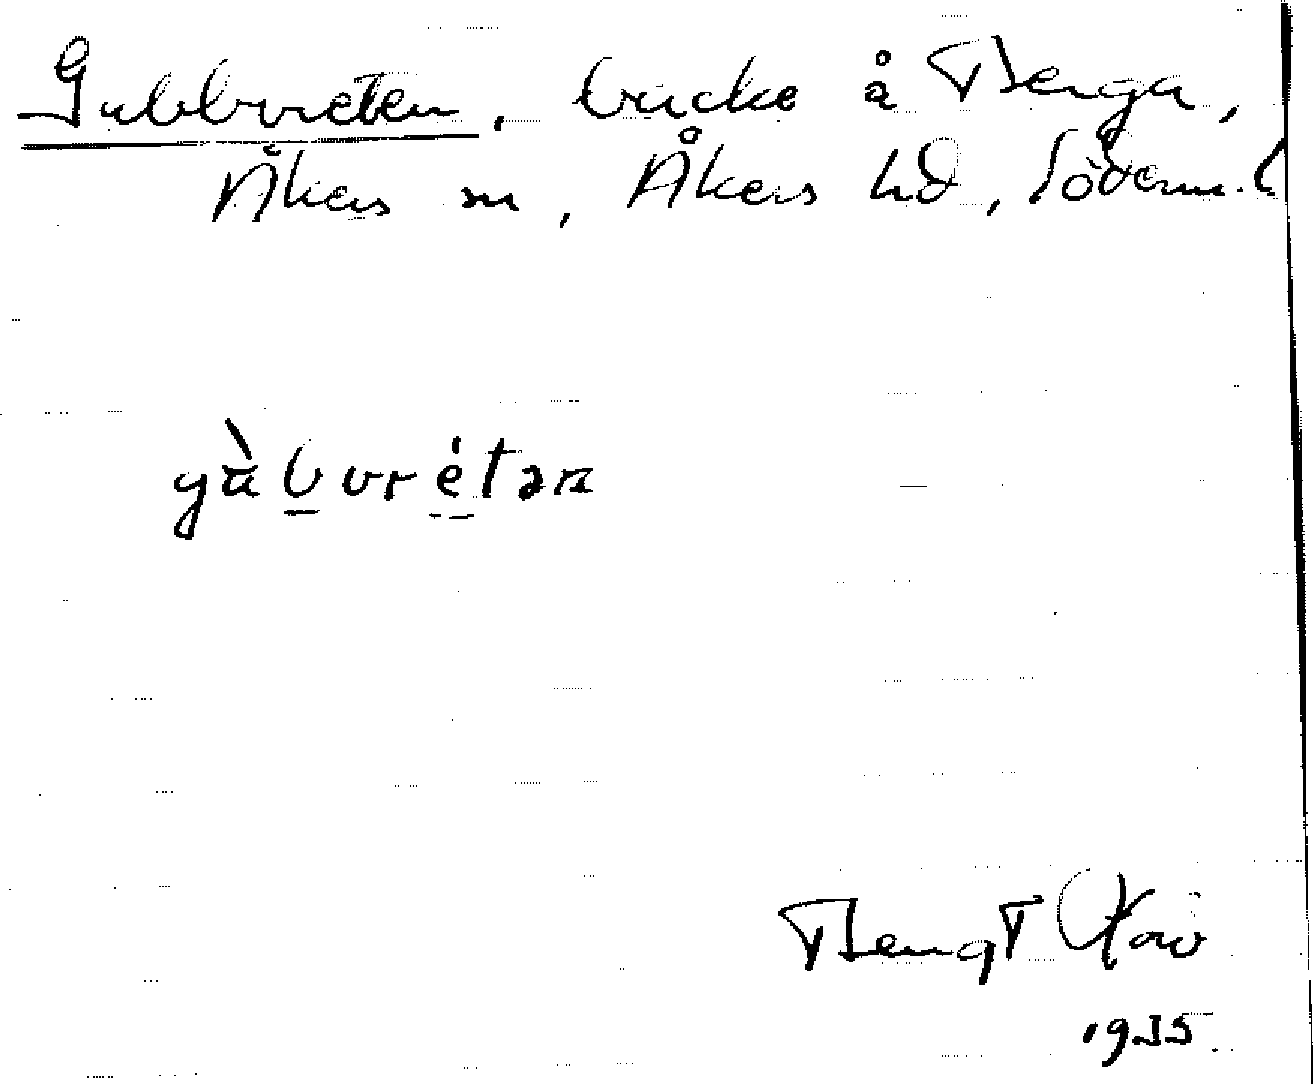 Gubbvreten, backe å Berga,
Åkers sn, Åkers hd, Söderm. l
gàbvrétən
Bengt
1935.